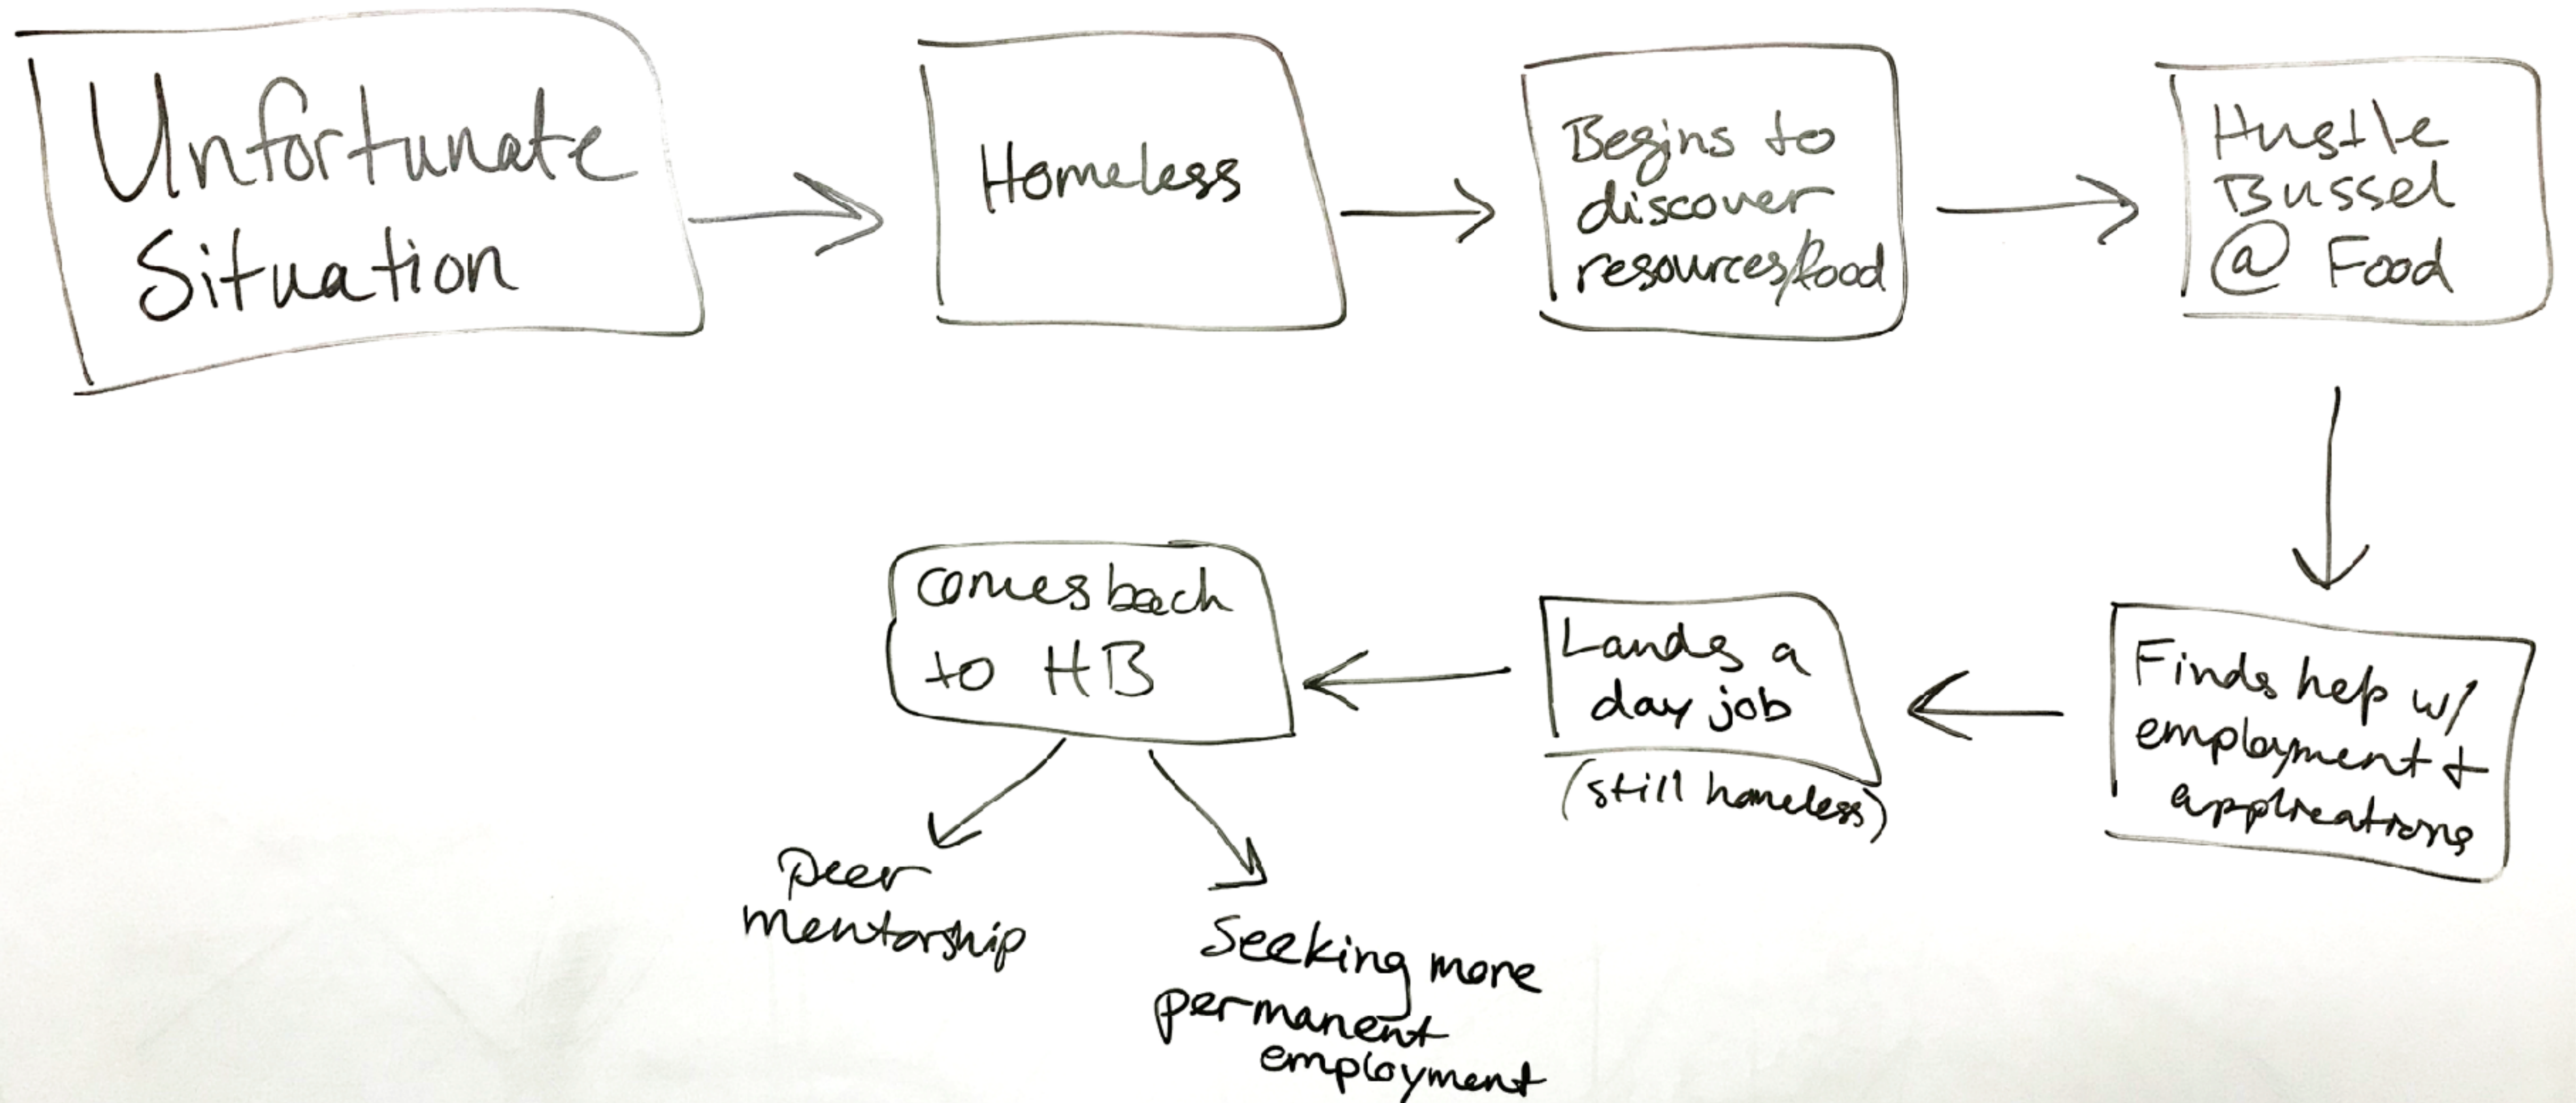 Unfortunate
Situation
Homeless
Begins to
discover
resources/food
Hustle
Bussel
@ Food
Finds help w/
employment +
applications
Lands a
day job
(still homeless)
comes back
to HB
peer
mentorship
Seeking more
permanent
employment